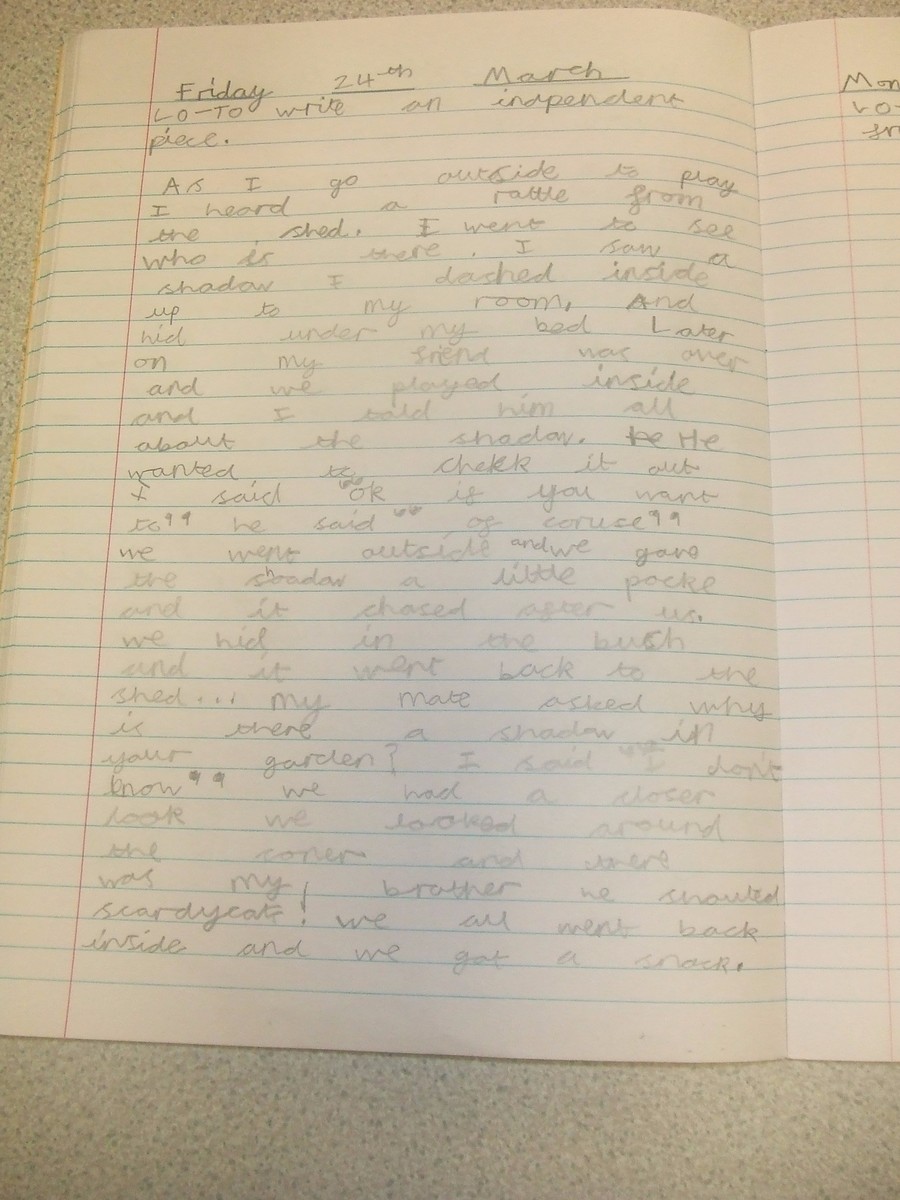 Friday 24th March
LO-TO write an indpendent
piece.
As I go outside to play
I heard a rattle from
the shed. I went to see
who is there. I saw a
shadow I dashed inside
up to my room, And
hid under my bed Later
on my friend was over
and we played inside
and I told him all
about the shadow. He
wanted to chekk it out
I said "ok if you want
to" he said " of coruse"
we went outside and we gave
the shadow a little pocke
and it chased after us.
we hid in the bush
and it went back to the
shed... my mate asked why
is there a shadow in
your garden? I said "I don't
know" we had a closer
look we looked around
the coner and there
was my brother he shouted
scardycat! we all went back
inside and we got a snack.
Mon
LO-
fr